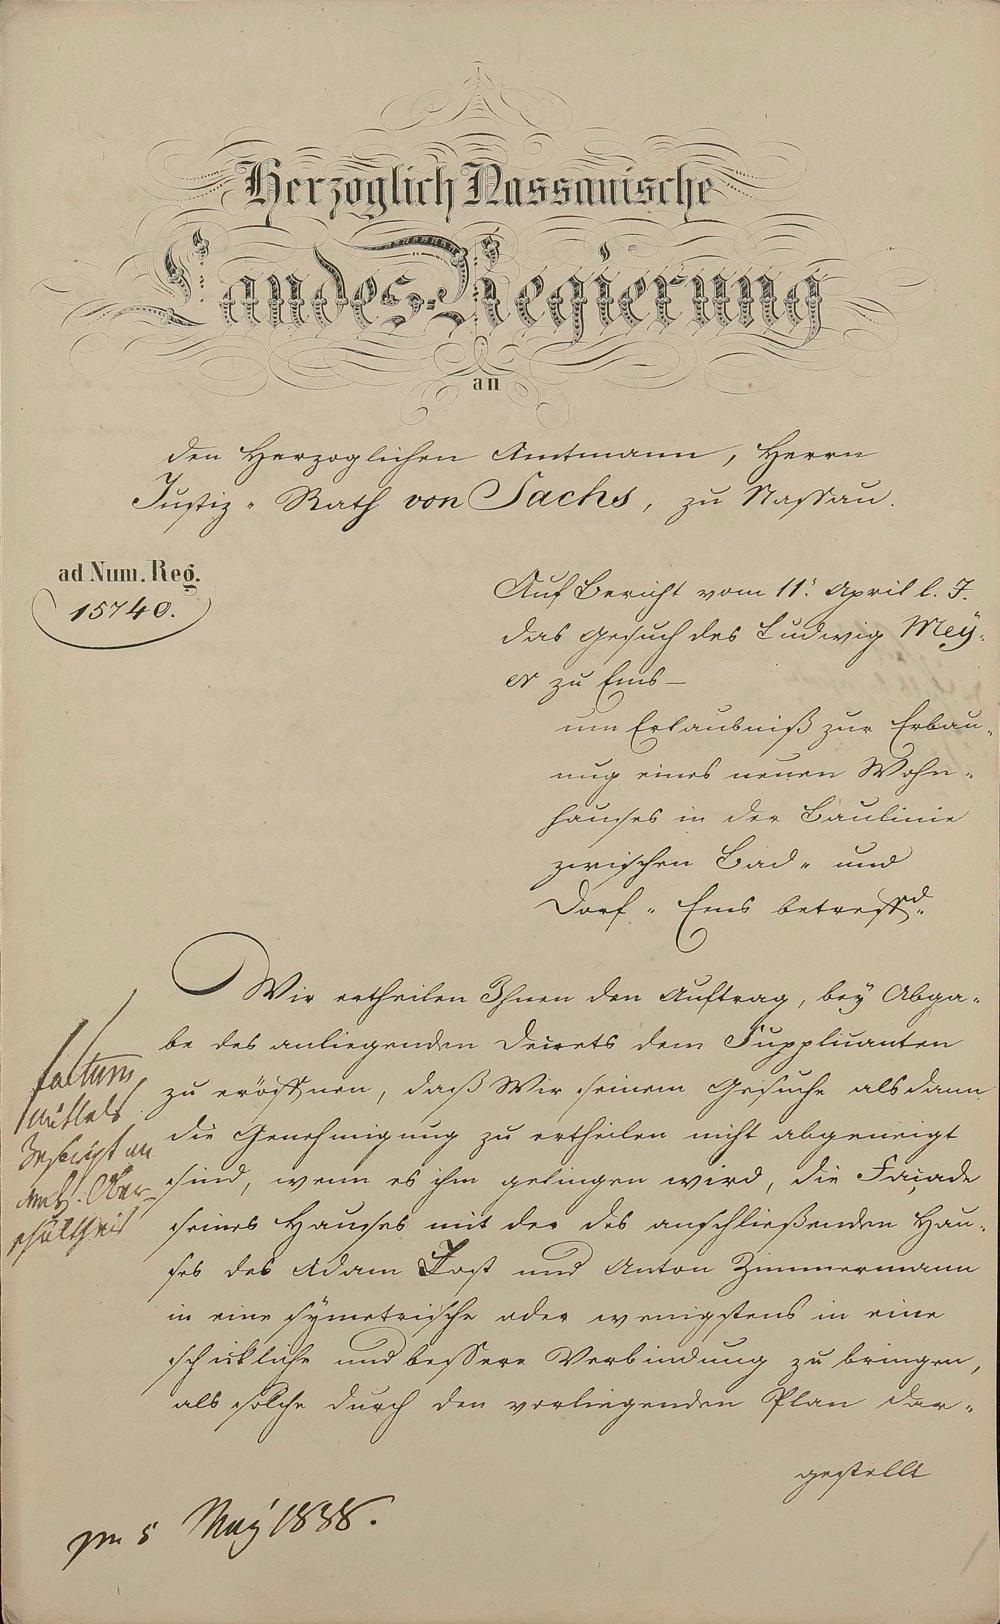 Herzoglich Nassauische
Landes-Regierung
an
den Herzoglichen Amtmann, Herrn
Justiz-Rath von Sachs, zu Nassau.
ad Num. Reg.
15740.
Auf Bericht vom 11. April l. J.
das Gesuch des Ludwig Mey-
er zu Ems –
um Erlaubniß zur Erbau-
ung eines neuen Wohn-
hauses in der Baulinie
zwischen Bad- und
Dorf-Ems betreffd.
Wir ertheilen Ihnen den Auftrag, bey Abga-
be des anliegenden Decrets dem Supplicanten
zu eröffnen, daß Wir seinem Gesuche alsdann
die Genehmigung zu ertheilen nicht abgeneigt
sind, wenn es ihm gelingen wird, die Façade
seines Hauses mit der des anschließenden Hau-
ses des Adam Jost und Anton Zimmermann
in eine symetrische oder wenigstens in eine
schickliche und bessere Verbindung zu bringen,
als solche durch den vorliegenden Plan dar-
gestellt
factum
mittels
Inscript an
Ober-
schultheis
pm 5 May 1838.